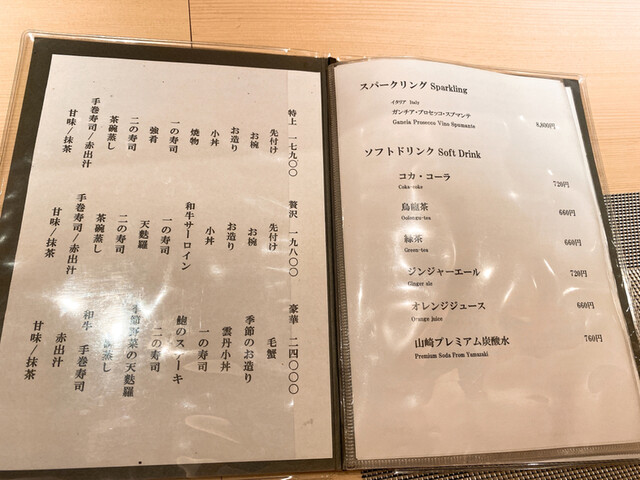 特上 一七九〇〇
先付け
お椀
お造り
小丼
焼物
一の寿司
強肴
二の寿司
茶碗蒸し
手巻寿司/赤出汁
甘味/抹茶
贅沢 一九八〇〇
先付け
お椀
お造り
小丼
和牛サーロイン
一の寿司
天麩羅
二の寿司
茶碗蒸し
手巻寿司/赤出汁
甘味/抹茶
豪華 二四〇〇〇
毛蟹
季節のお造り
雲丹小丼
一の寿司
鮑のステーキ
二の寿司
季節野菜の天麩羅
蒸し
和牛 手巻寿司
赤出汁
甘味/抹茶
スパークリング Sparkling
イタリア Italy
ガンチア・プロセッコ・スプマンテ
Gancia Prosecco Vino Spumante 8,800円
ソフトドリンク Soft Drink
コカ・コーラ
Coka-coke 720円
烏龍茶
Oolongu-tea 660円
緑茶
Green-tea 660円
ジンジャーエール
Ginger ale 720円
オレンジジュース
Orange juice 660円
山崎プレミアム炭酸水
Premium Soda From Yamazaki 760円